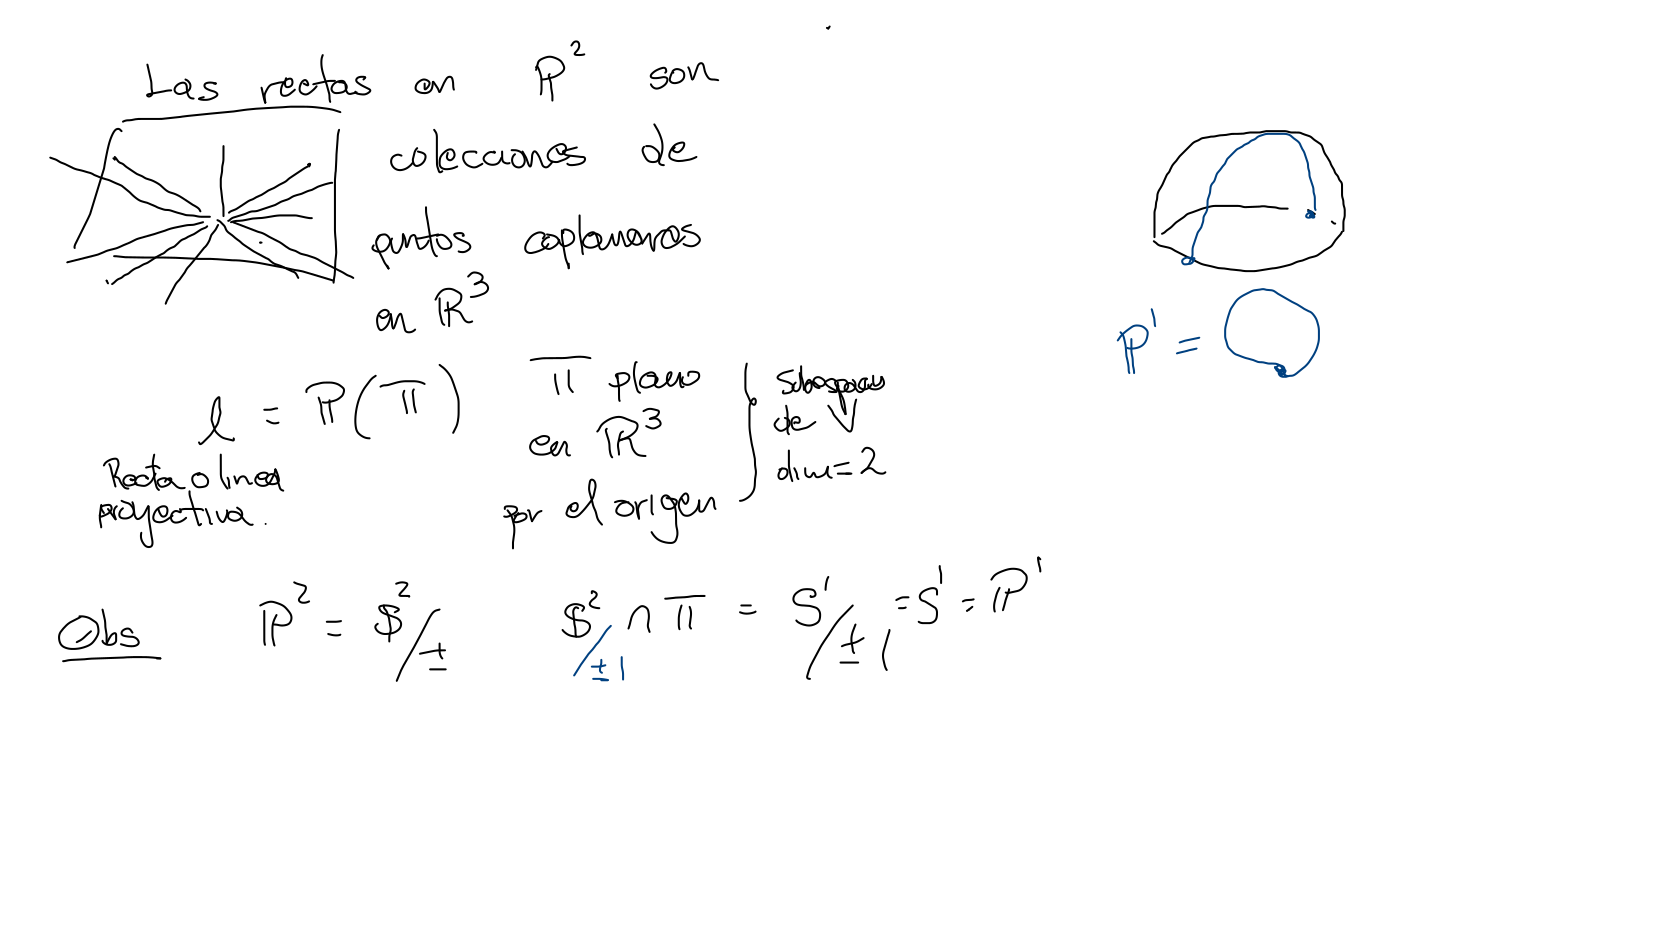 Las rectas en ℙ² son
colecciones de
puntos coplanares
en ℝ³
ℓ = ℙ(Π)
Recta o linea
proyectiva.
Π plano
en ℝ³
por el origen
Subespacios
de V
dim = 2
ℙ¹ =
Obs ℙ² = 𝕊²/± 𝕊²/±1 ∩ Π = S¹/±1 = S¹ = ℙ¹